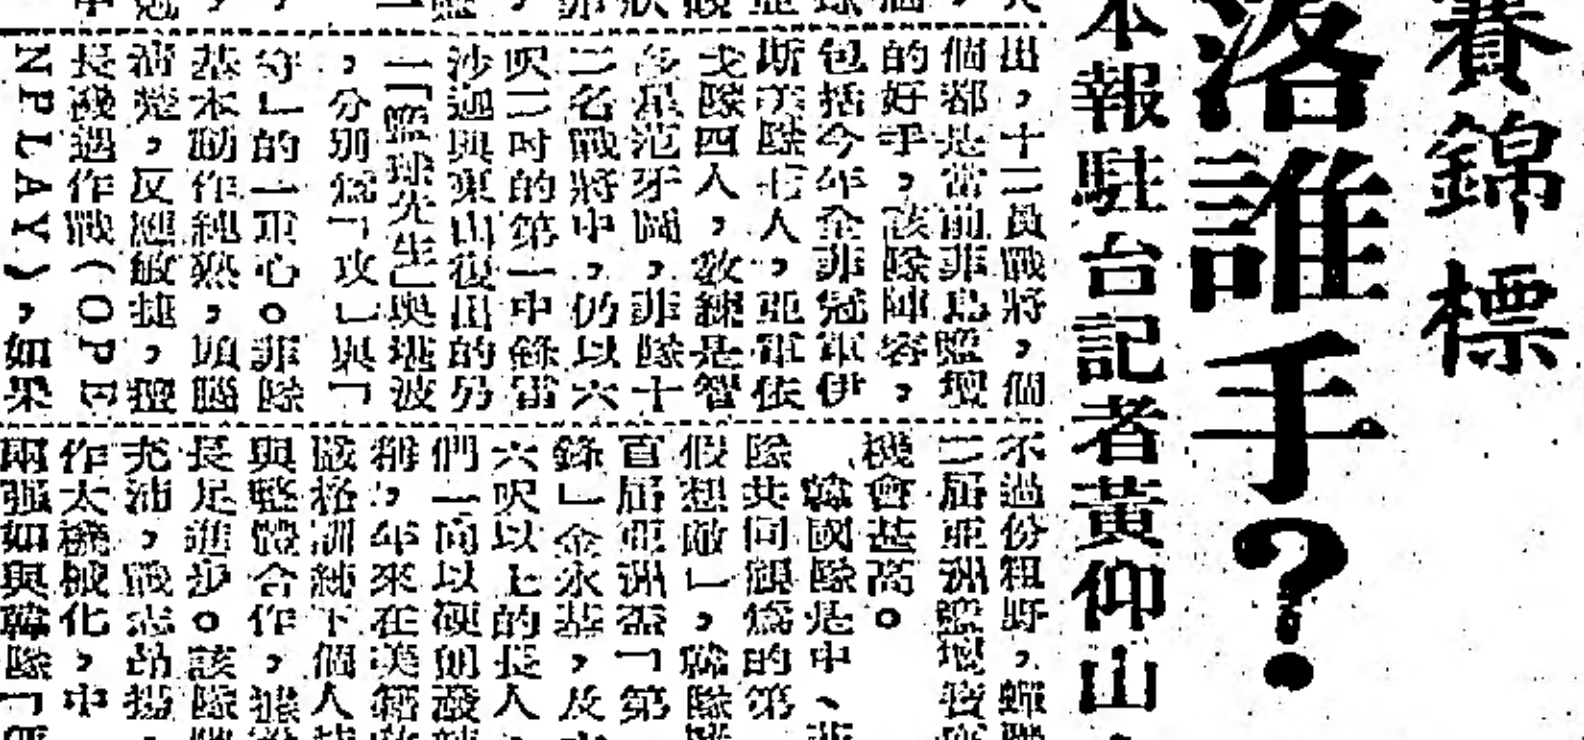 賽錦標
落誰手?
本報駐台記者黃仰山
出,十二員戰將,個
個都是當前菲島籃壇
的好手,該隊陣容,
包括今年全菲冠軍伊
斯隊七人,亞軍依
隊四人,教練是智
多星范牙圖,菲隊十
二名戰將中,仍以六
呎二吋的第一中鋒雷
沙過與東山復出的另
一「籃球先生」與堪波
,分別為「攻」與「
守」的一重心。菲隊
基本動作純熟,頭腦
清楚,反應敏捷,擅
長機遇作戰(OPE
NPLAY),如果
不過份粗野,蟬聯
二屆亞洲籃壇寶座
機會甚高。
韓國隊是中、菲
隊共同視為的第
假想敵」,韓隊
首屆亞洲盃「第
鋒」金永基,及
六呎以上的長人
們一向以硬朗
稱,年來在美籍
嚴格訓練下個人
與整體合作,據
長足進步。該隊
充沛,戰志昂揚
作太機械化,中
兩强如與韓隊「